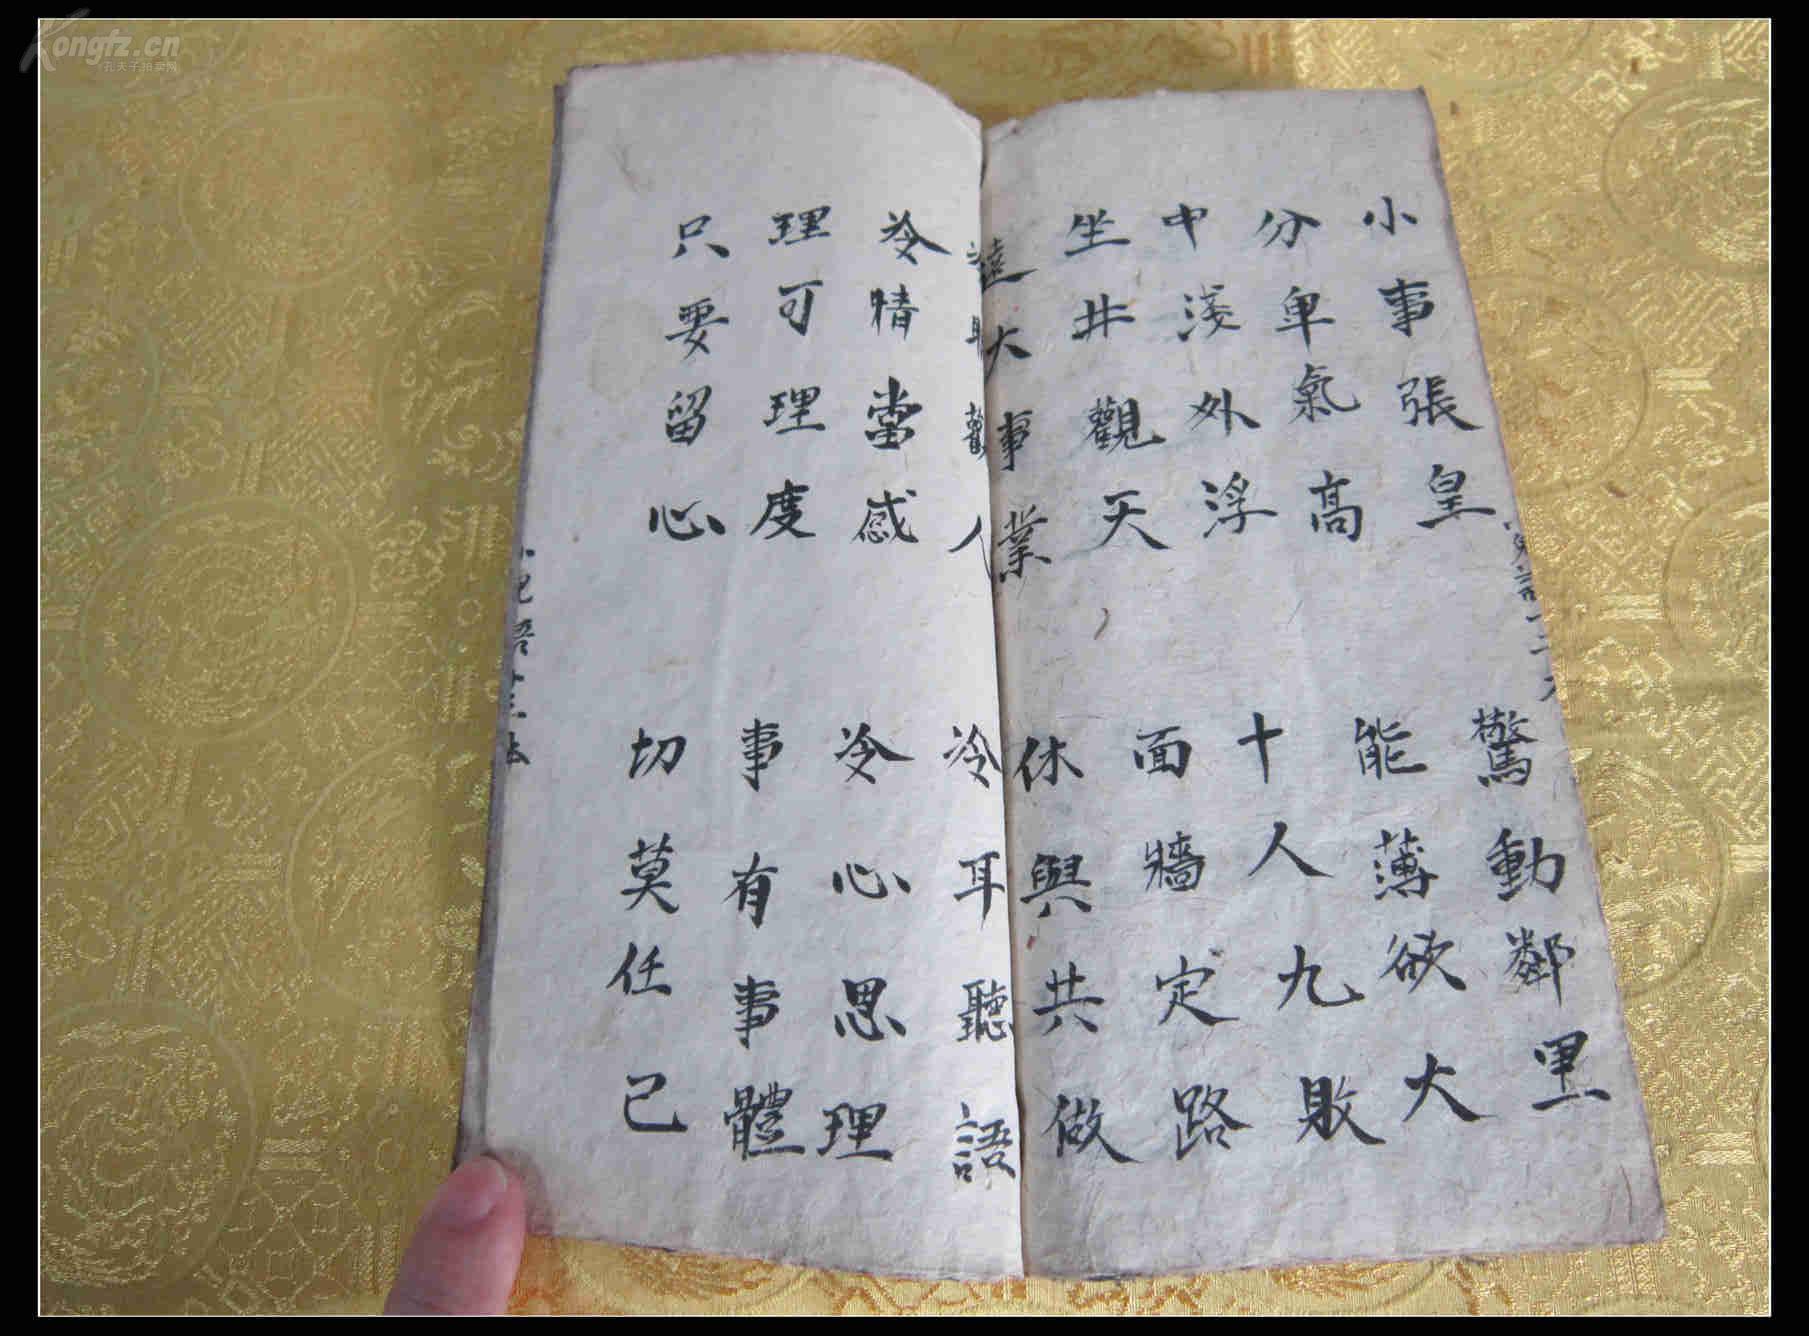 小事張皇 驚動鄰里
分卑氣高 能薄欲大
中淺外浮 十人九敗
坐井觀天 面墻定路
遠大事業 休與共做
人 冷耳聽語
冷情當感 冷心思理
理可理度 事有事體
只要留心 切莫任己
Kongfz.cn
孔夫子拍卖网